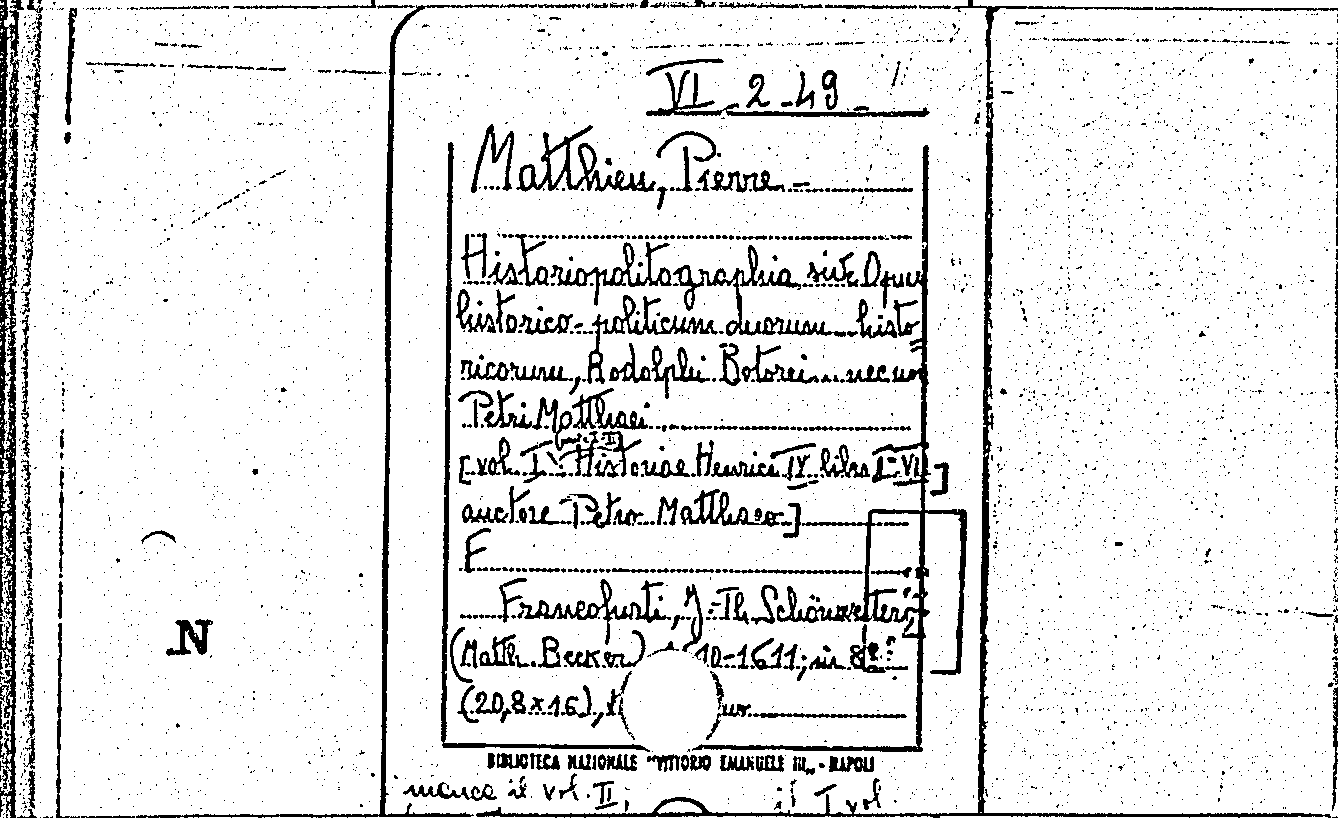 VI-2-49-
Matthieu, Pierre -
Historiopolitographia sive Opus
historico-politicum duorum histo=
ricorum, Rodolphi Botorei... necnon
Petri Matthaei.
(parte I-II)
[vol. I: Historiae Henrici IV libri I-VII]
auctore Petro Matthaeo]
F
Francofurti, J.-Th. Schönwetteri,
(Matth. Becker) 10-1611; in 8º
(20,8x16),
BIBLIOTECA NAZIONALE "VITTORIO EMANUELE III„ - NAPOLI
manca il vol. II; il I vol.
N